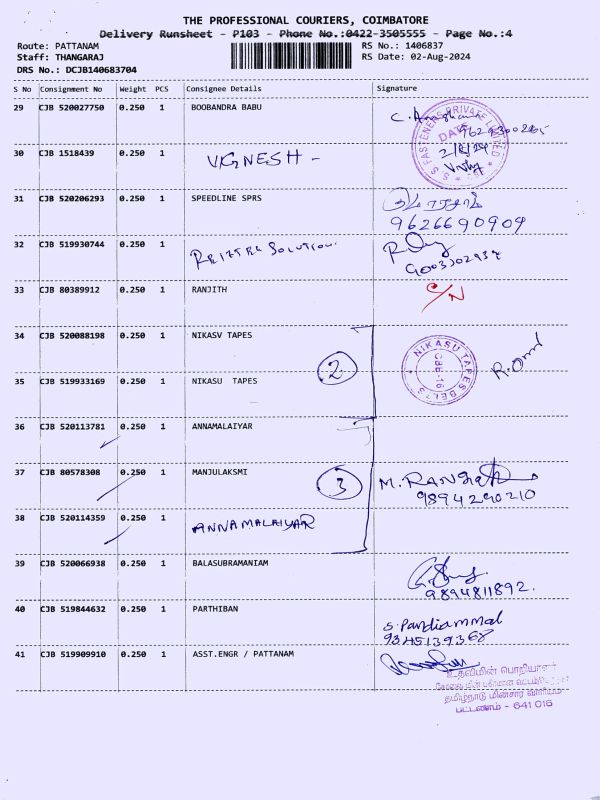 THE PROFESSIONAL COURIERS, COIMBATORE
Delivery Runsheet - P103 - Phone No.:0422-3505555 - Page No.:4
Route: PATTANAM RS No.: 1406837
Staff: THANGARAJ RS Date: 02-Aug-2024
DRS No.: DCJB140683704
S No Consignment No Weight PCS Consignee Details Signature
29 CJB 520027750 0.250 1 BOOBANDRA BABU
S S FASTENERS PRIVATE LIMITED
DATE
2/8/24
30 CJB 1518439 0.250 1 VIGNESH -
31 CJB 520206293 0.250 1 SPEEDLINE SPRS
9626690909
32 CJB 519930744 0.250 1
9003302934
33 CJB 80389912 0.250 1 RANJITH C/N
34 CJB 520088198 0.250 1 NIKASV TAPES
2
NIKASU TAPES BELTS
CBE-16
35 CJB 519933169 0.250 1 NIKASU TAPES
36 CJB 520113781 0.250 1 ANNAMALAIYAR
37 CJB 80578308 0.250 1 MANJULAKSMI
3
9894290210
38 CJB 520114359 0.250 1 ANNAMALAIYAR
39 CJB 520066938 0.250 1 BALASUBRAMANIAM
9894811892.
40 CJB 519844632 0.250 1 PARTHIBAN S. Pandiammal
9345139368
41 CJB 519909910 0.250 1 ASST.ENGR / PATTANAM
உதவிமின் பொறியாளர்
தமிழ்நாடு மின்சார வாரியம்
பட்டணம் - 641 016